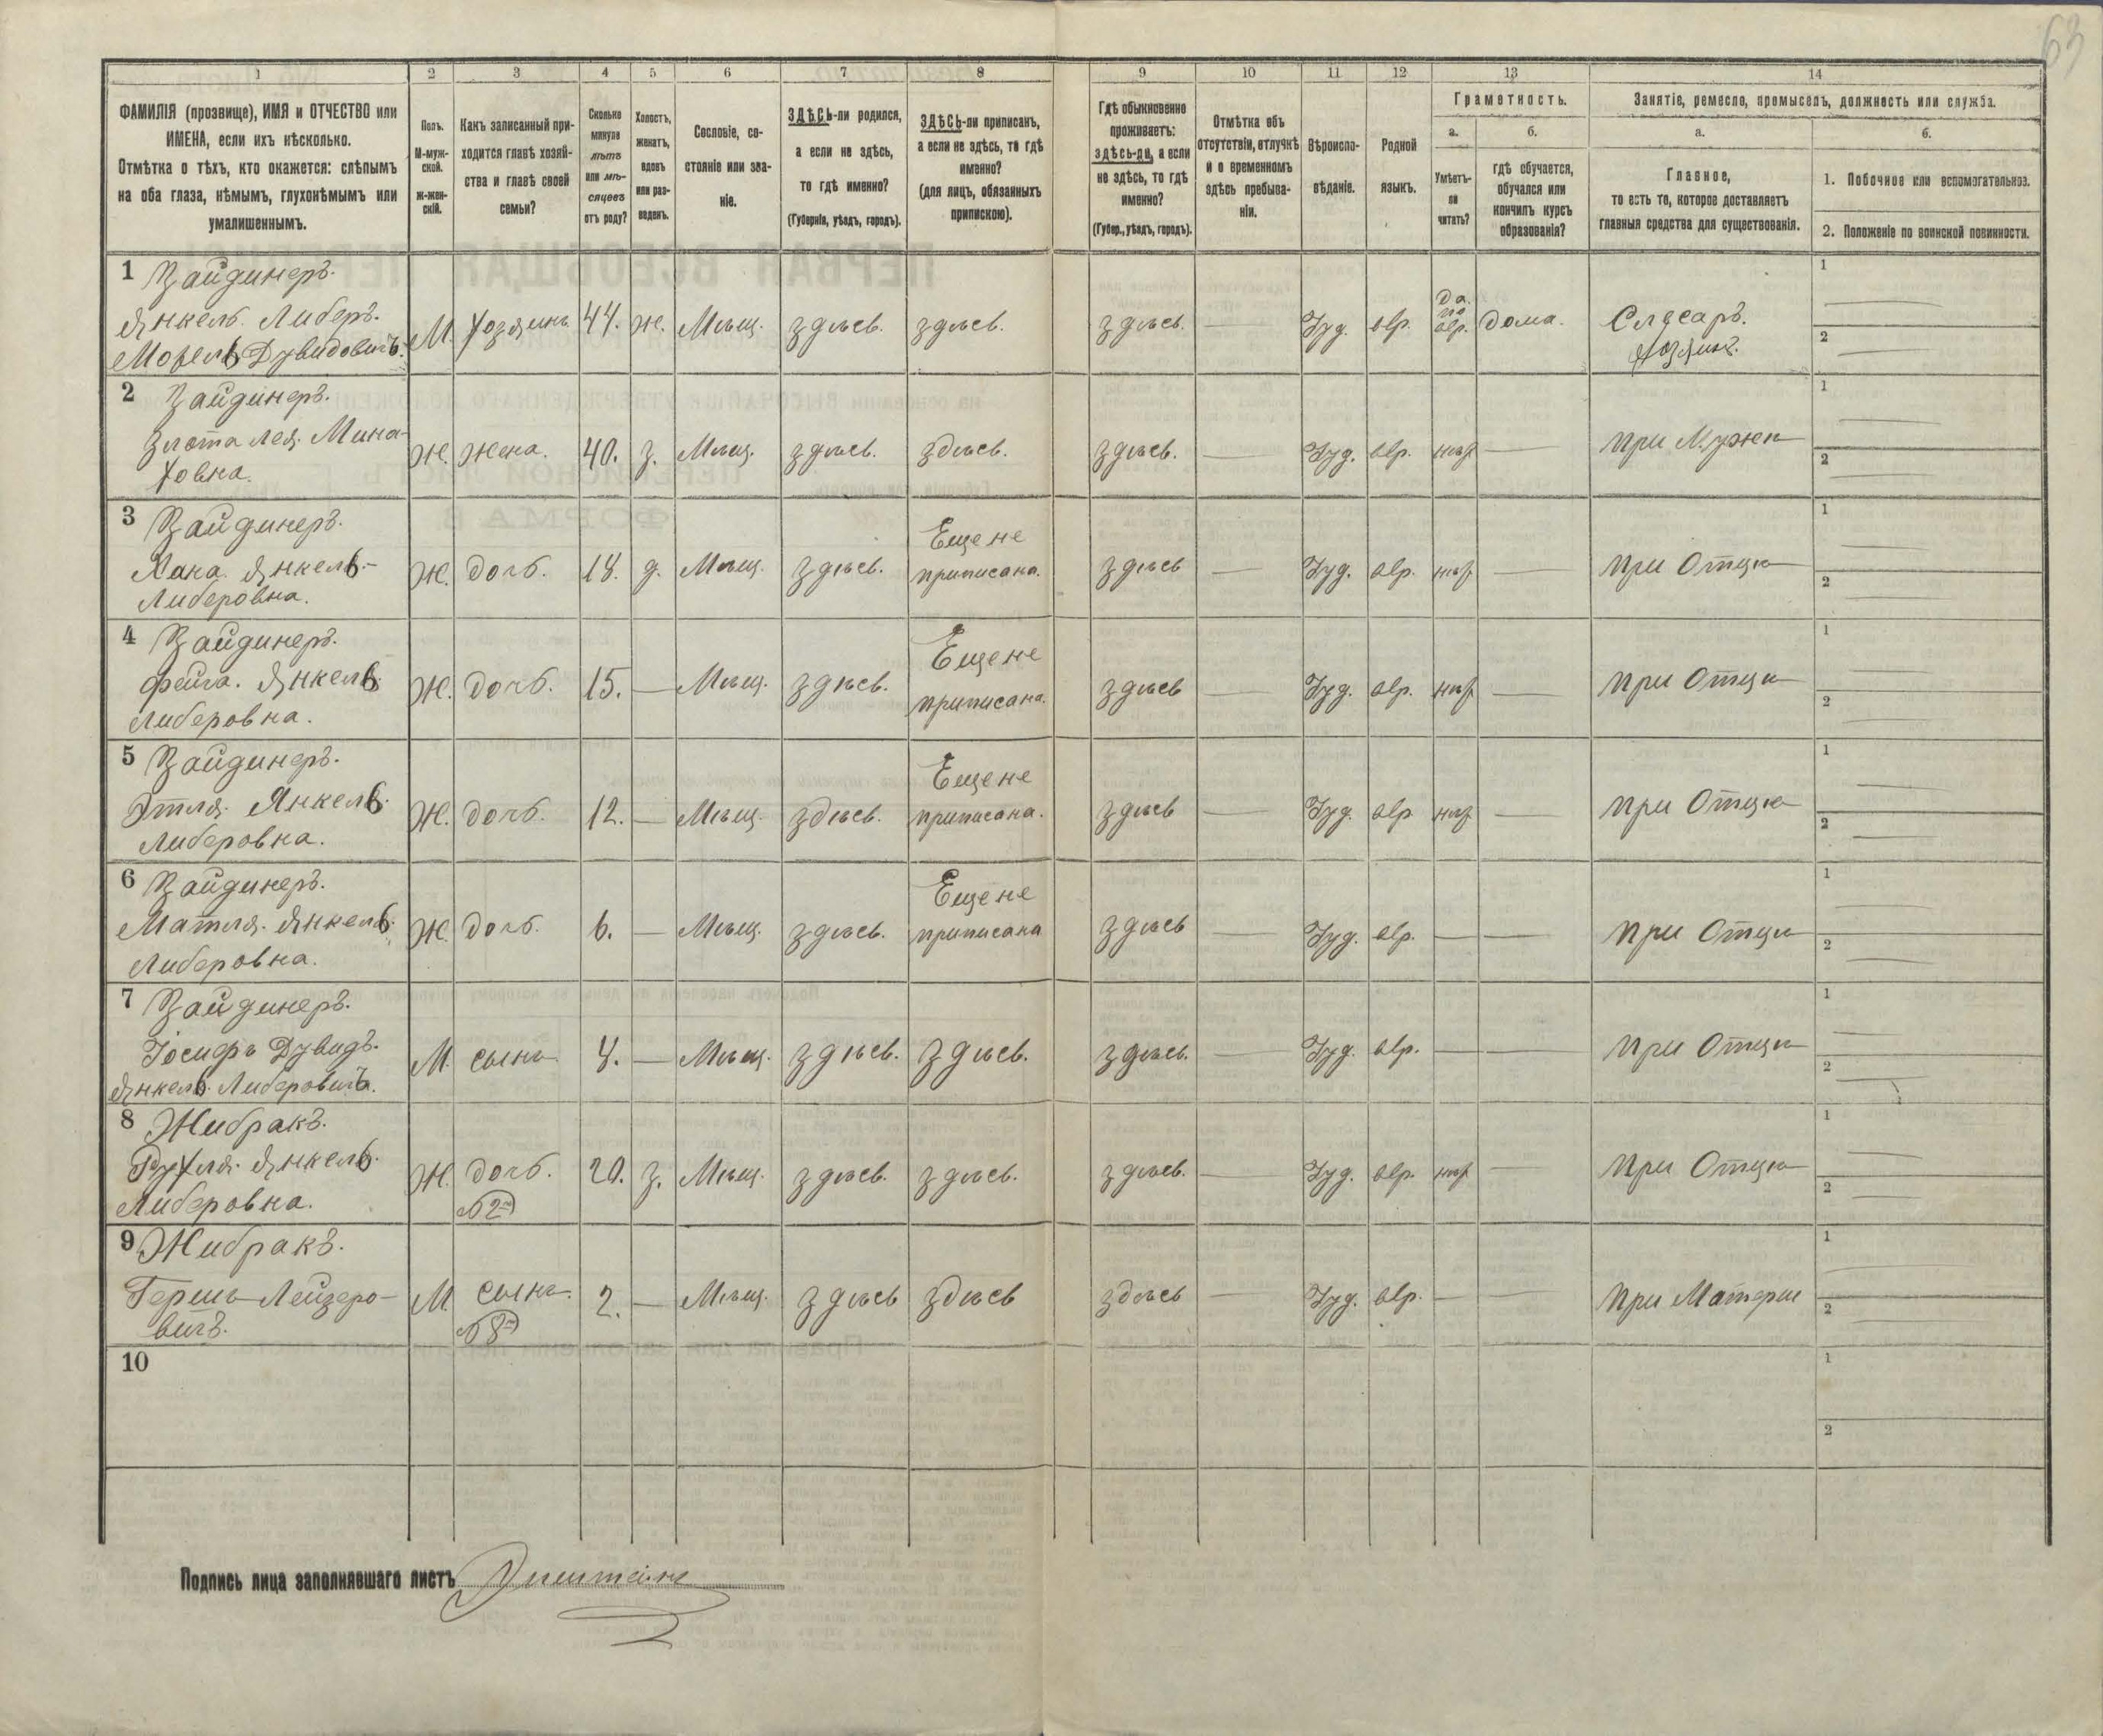 63
1 2 3 4 5 6 7 8 9 10 11 12 13 14
ФАМИЛІЯ (прозвище), ИМЯ и ОТЧЕСТВО или
ИМЕНА, если ихъ нѣсколько.
Отмѣтка о тѣхъ, кто окажется: слѣпымъ
на оба глаза, нѣмымъ, глухонѣмымъ или
умалишеннымъ.
Полъ.
М-муж-
ской.
ж-жен-
скій.
Какъ записанный при-
ходится главѣ хозяй-
ства и главѣ своей
семьи?
Сколько
минуло
лѣтъ
или мѣ-
сяцевъ
отъ роду?
Холостъ,
женатъ,
вдовъ
или раз-
веденъ.
Сословіе, со-
стояніе или зва-
ніе.
ЗДѢСЬ-ли родился,
а если не здѣсь,
то гдѣ именно?
(Губернія, уѣздъ, городъ).
ЗДѢСЬ-ли приписанъ,
а если не здѣсь, то гдѣ
именно?
(для лицъ, обязанныхъ
припискою).
Гдѣ обыкновенно
проживаетъ:
здѣсь-ли, а если
не здѣсь, то гдѣ
именно?
(Губер., уѣздъ, городъ).
Отмѣтка объ
отсутствіи, отлучкѣ
и о временномъ
здѣсь пребыва-
ніи.
Вѣроиспо-
вѣданіе.
Родной
языкъ.
Грамотность.
а. б.
Умѣетъ-
ли
читать?
гдѣ обучается,
обучался или
кончилъ курсъ
образованія?
Занятіе, ремесло, промыселъ, должность или служба.
а. б.
Главное,
то есть то, которое доставляетъ
главныя средства для существованія.
1. Побочное или вспомогательное.
2. Положеніе по воинской повинности.
1 Зайдинеръ.
Янкель. Либеръ.
Дувидовичъ.
М. Хозяинъ 44. Ж. Мѣщ. здѣсь. здѣсь. здѣсь. — Іуд. евр. Да по евр. дома. Слесарь. Хозяинъ. 1 — 2 —
2 Зайдинеръ.
Злота Лея. Мина-
ховна.
Ж. Жена. 40. з. Мѣщ. здѣсь. здѣсь. здѣсь. — Іуд. евр. нѣт — при Мужѣ 1 — 2 —
3 Зайдинеръ.
Хана. Янкель-
Либеровна.
Ж. дочь. 18. д. Мѣщ. здѣсь. Еще не приписана. здѣсь — Іуд. евр. нѣт — при Отцѣ 1 — 2 —
4 Зайдинеръ.
Фейга. Янкель
Либеровна.
Ж. дочь. 15. — Мѣщ. здѣсь. Еще не приписана. здѣсь — Іуд. евр. нѣт — при Отцѣ 1 — 2 —
5 Зайдинеръ.
Этля. Янкель.
Либеровна.
Ж. дочь. 12. — Мѣщ. здѣсь. Еще не приписана. здѣсь — Іуд. евр нѣт — при Отцѣ 1 — 2 —
6 Зайдинеръ.
Матля. Янкель.
Либеровна.
Ж. дочь. 6. — Мѣщ. здѣсь. Еще не приписана здѣсь — Іуд. евр. — — при Отцѣ 1 — 2 —
7 Зайдинеръ.
Іосифъ Дувидъ.
Янкель. Либеровичъ.
М. сынъ 4. — Мѣщ. здѣсь. здѣсь. здѣсь. — Іуд. евр. — — при Отцѣ 1 — 2 —
8 Жибракъ.
Рухля. Янкель.
Либеровна.
Ж. дочь. 20. з. Мѣщ. здѣсь. здѣсь. здѣсь. — Іуд. евр. нѣт — при Отцѣ 1 — 2 —
9 Жибракъ.
Гершъ Лейзеро-
вичъ.
М сынъ. 2. — Мѣщ. здѣсь здѣсь здѣсь — Іуд. евр. — — при Матери 1 — 2 —
10 1 2
Подпись лица заполнявшаго листъ